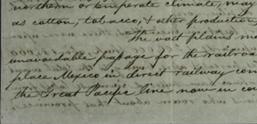 northern or temperate climate, may
as cotton, tobacco, & other production
The vast plains
unavoidable passage for the railroad
place Mexico in direct railway con
the Great Pacific line now in co